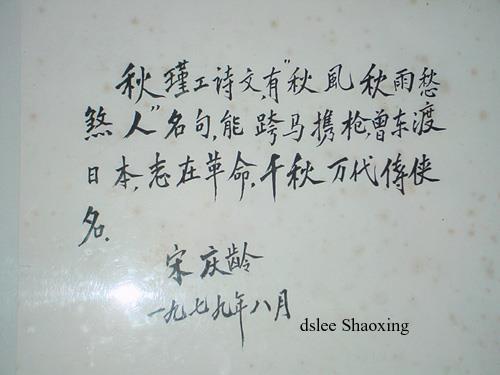 秋瑾工诗文,有"秋風秋雨愁
煞人"名句,能跨马携枪,曾东渡
日本,志在革命,千秋万代傳侠
名.
宋庆龄
一九七九年八月
dslee Shaoxing